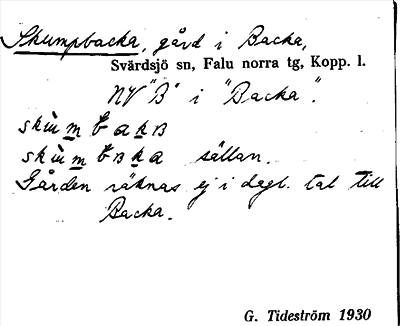 Skumpbacka, gård i Backa,
Svärdsjö sn, Falu norra tg, Kopp. l.
NV "B" i "Backa".
skùm bakв
skùm bвka sällan.
Gården räknas ej i dagl. tal till
Backa.
G. Tideström 1930